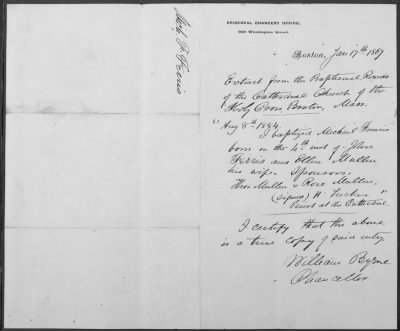 Mich. F. Ferris
EPISCOPAL CHANCERY OFFICE,
Washington Street.
Boston, Jan 17th 1887
Extract from the Baptismal Records
of the Cathedral Church of the
Holy Cross Boston, Mass.
"Aug 8th 1854.
I baptized Michael Francis
born on the 4th inst. of
Ferris and Ellen Mullen
his wife. Sponsors.
Thos Mullen & Rose Mullen.
(signed) H. "
Priest at the Cathedral.
I certify that the above
is a true copy of said entry.
William Byrne
Chancellor